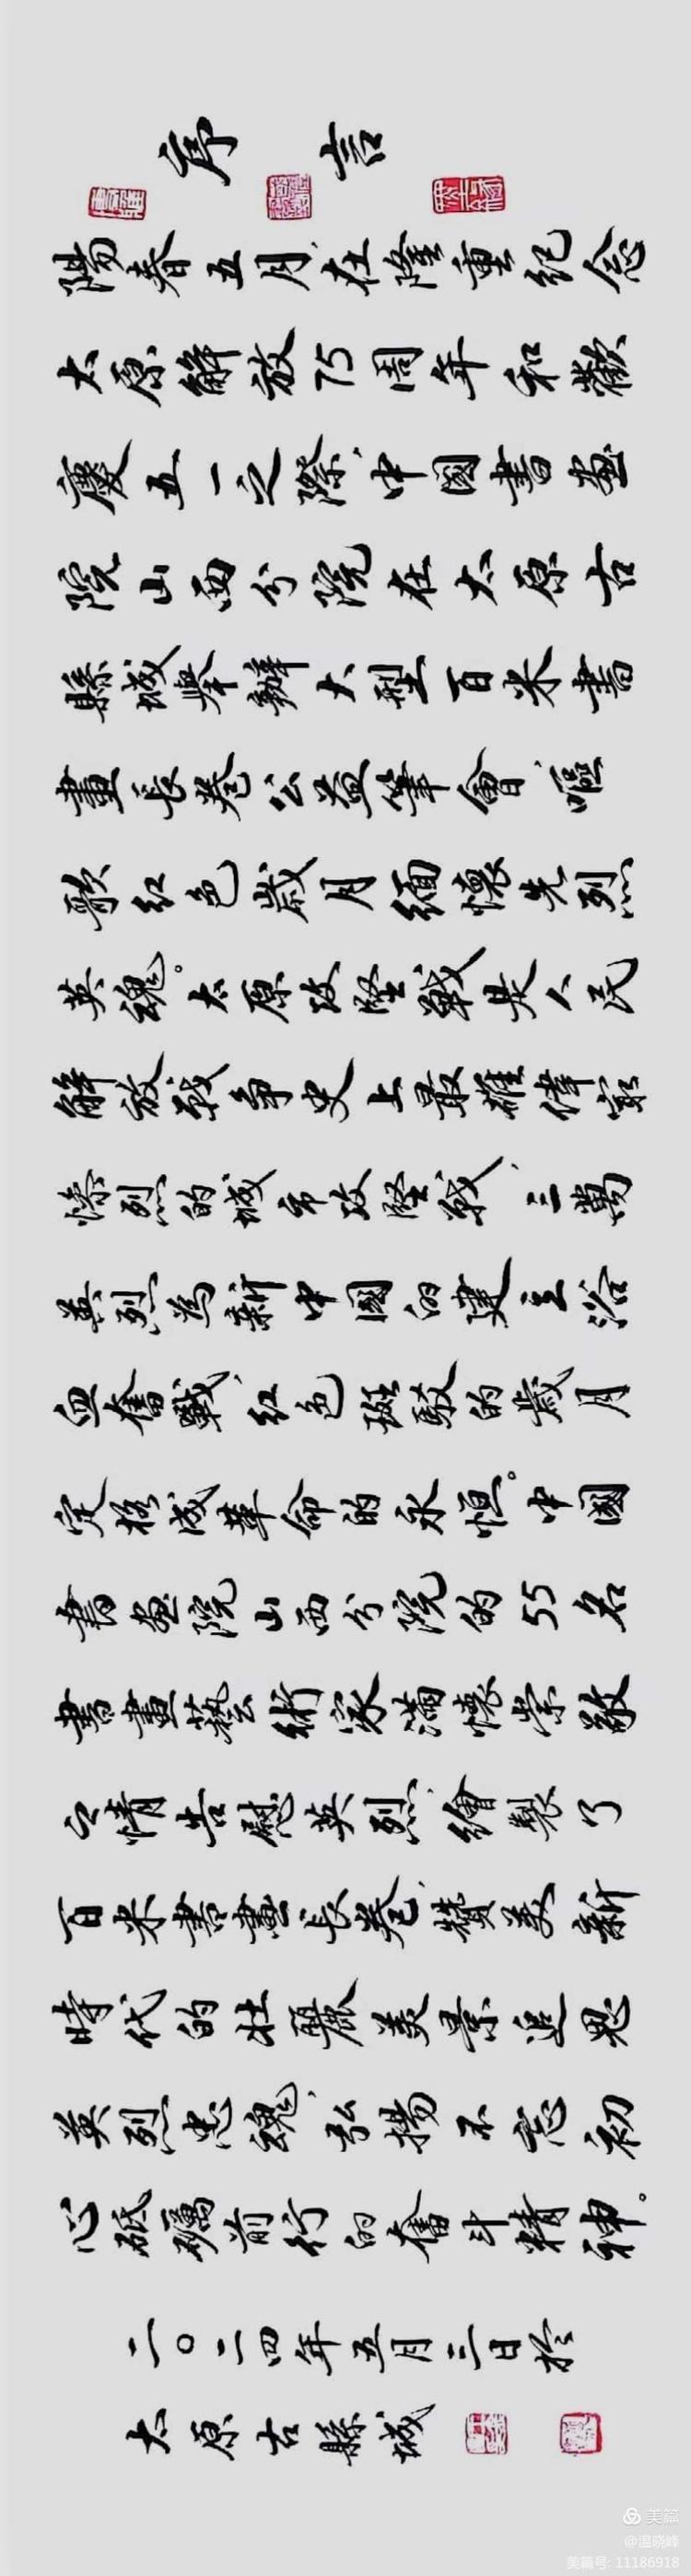 序言
陽春五月，在隆重紀念
太原解放75周年和歡
慶五一之際，中國書画
院山西分院在太原古
縣城舉辦大型百米書
畫長卷公益筆會，嘔
歌紅色歲月緬懷先烈
英魂。太原攻堅戰是人民
解放戰爭史上最雄偉最
慘烈的城市攻堅戰，三萬
英烈為新中國的建立浴
血奮戰，紅色斑駁的歲月
定格成革命的永恒。中國
書画院山西分院的55名
書畫藝術家滿懷崇敬
之情告慰英烈，繪製了
百米書畫長卷，贊美新
時代的壯麗美景追思
英烈忠魂，弘揚不忘初
心砥礪前行的奮斗精神。
二〇二四年五月三日於
太原古縣城
美篇
@温晓峰
美篇号: 11186918